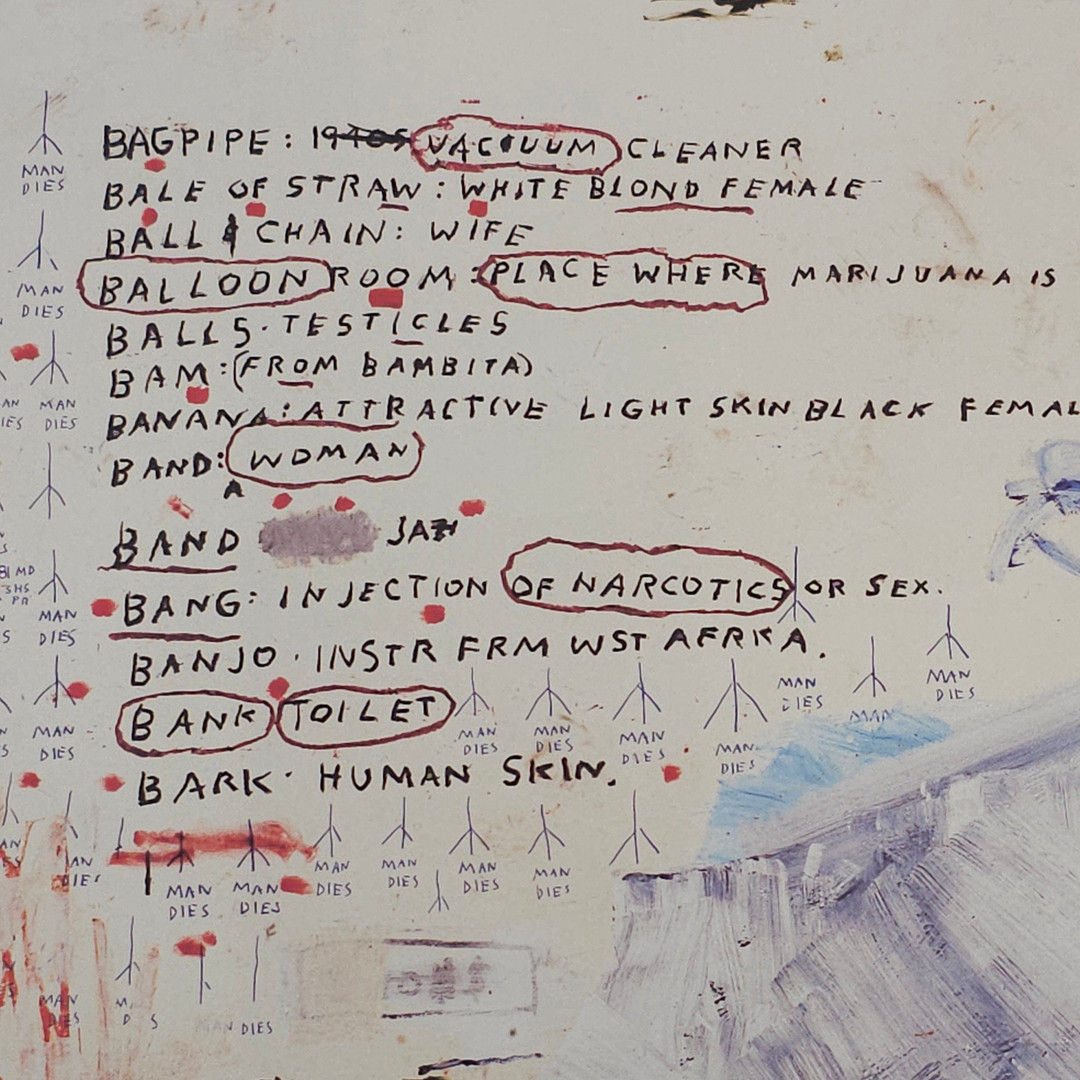 BAGPIPE: 1940S VACUUM CLEANER
BALE OF STRAW: WHITE BLOND FEMALE
BALL & CHAIN: WIFE
BALLOON ROOM: PLACE WHERE MARIJUANA IS
BALLS. TESTICLES
BAM: (FROM BAMBITA)
BANANA: ATTRACTIVE LIGHT SKIN BLACK FEMAL
BAND: WOMAN
A
BAND JAZZ
BANG: INJECTION OF NARCOTICS OR SEX.
BANJO. INSTR FRM WST AFRKA.
BANK TOILET
BARK. HUMAN SKIN.
MAN
DIES
MAN
DIES
MAN
DIES
MAN
DIES
MAN
DIES
MAN
DIES
MAN
DIES
MAN
DIES
MAN
DIES
MAN
DIES
MAN
MAN
DIES
MAN
DIES
MAN
DIES
MAN
DIES
MAN
DIES
MAN
DIES
MAN
DIES
MAN
DIES
MAN DIES